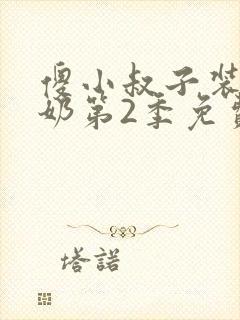 傻小叔子装
奶第2季免费
塔諾